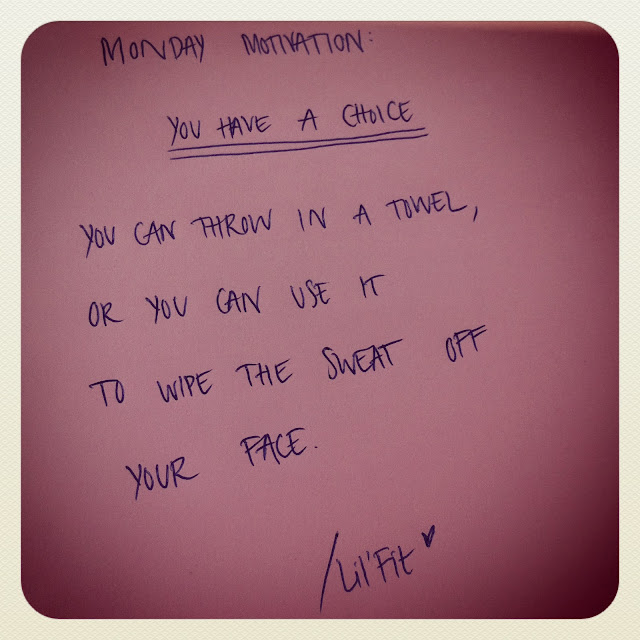 MONDAY MOTIVATION:
YOU HAVE A CHOICE
YOU CAN THROW IN A TOWEL,
OR YOU CAN USE IT
TO WIPE THE SWEAT OFF
YOUR FACE.
/Lil'Fit ♥